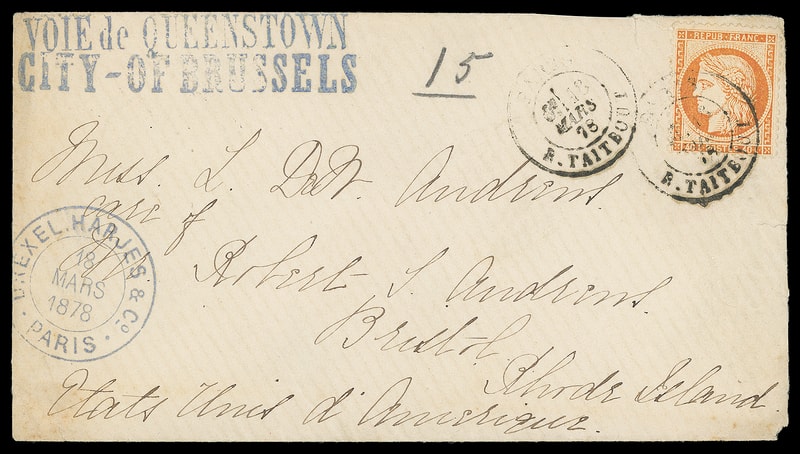 VOIE de QUEENSTOWN
CITY-OF BRUSSELS
15
18
MARS
78
R. TAITBOUT
REPUB. FRANC.
R. TAITBOUT
Miss. L. DeW. Andrews.
care of
Robert S. Andrews.
Bristol,
Rhode Island.
Etats Unis d'Amerique.
DREXEL, HARJES & Co.
18
MARS
1878
PARIS